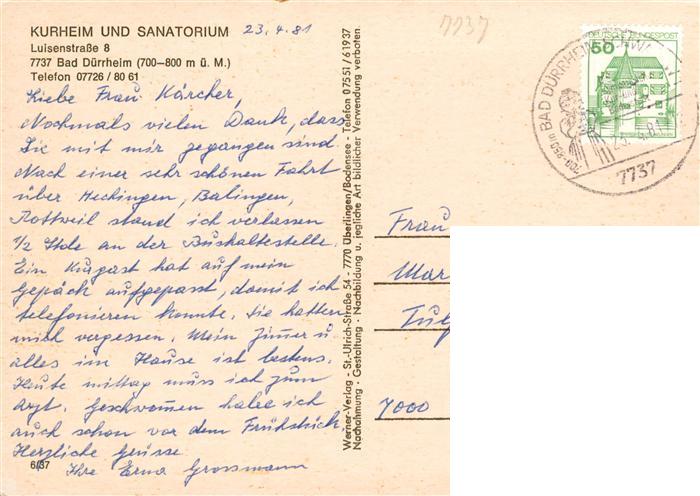 KURHEIM UND SANATORIUM 23.4.81
Luisenstraße 8
7737 Bad Dürrheim (700–800 m ü. M.)
Telefon 07726 / 80 61
Liebe Frau Kärcher,
Nochmals vielen Dank, dass
Sie mit mir gegangen sind.
Nach einer sehr schönen Fahrt
über Hechingen, Balingen,
Rottweil stand ich verlassen
1/2 Stde an der Bushaltestelle.
Ein Kurgast hat auf mein
Gepäck aufgepasst, damit ich
telefonieren konnte. Sie hatten
mich vergessen. Mein Zimmer u
alles im Hause ist bestens.
Heute mittag muss ich zum
Arzt. Geschwommen habe ich
auch schon vor dem Frühstück.
Herzliche Grüsse
Ihre Erna Grossmann
6/37
Werner-Verlag - St.-Ulrich-Straße 54 - 7770 Überlingen/Bodensee - Telefon 07551/61937
Nachahmung - Gestaltung - Nachbildung u. jegliche Art bildlicher Verwendung verboten
7737
DEUTSCHE BUNDESPOST
50
BAD DÜRRHEIM
7737
Frau
Mar
Tul
7000